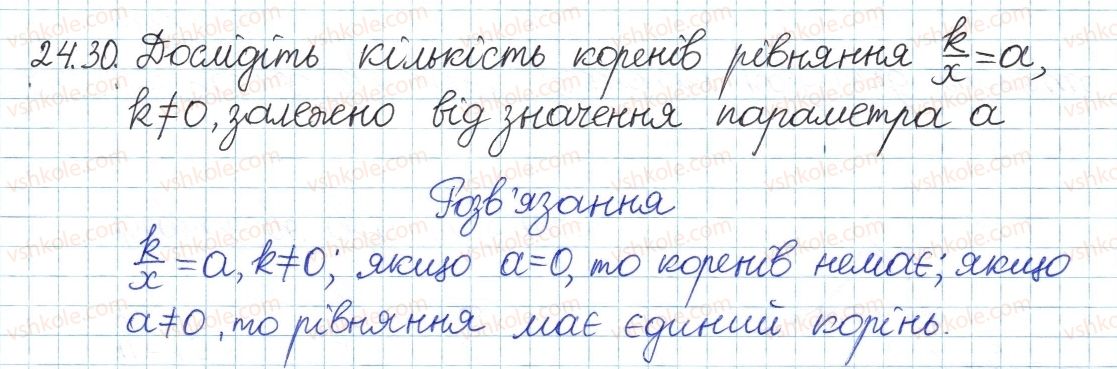 24.30. Дослідіть кількість коренів рівняння k/x = a,
k≠0, залежно від значення параметра a
Розв'язання
k/x = a, k≠0; якщо a=0, то коренів немає; якщо
a≠0, то рівняння має єдиний корінь.